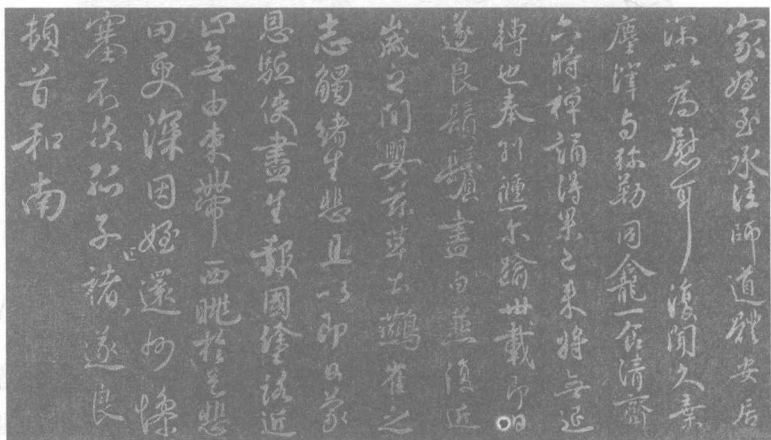 家姪至承法師道體安居
深以爲慰耳復聞久棄
塵滓與彌勒同龕一食清齋
六時禪誦得果已來將無退
轉也奉別倏爾踰卌載即日
遂良鬚鬢盡白兼復近
歲之間嬰茲草土鷰雀之
志觸緒生悲且以即日蒙
恩驅使盡生報國塗路近
止無由束帶西眺於邑悲
罔更深因姪還州慘
塞不次孤子褚遂良
頓首和南